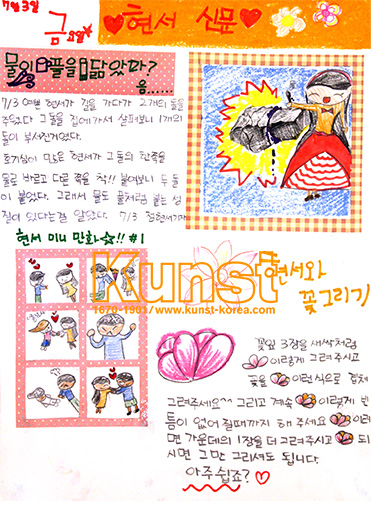 7월 3일
금요일
♥현서 신문♥
물이 풀을 닮았따?
음......
7/3 예쁜 현서가 길을 가다가 2개의 돌을
주웠다 그 돌을 집에가서 살펴보니 1개의
돌이 부서진거였다.
호기심이 많은 현서가 그 돌의 한쪽을
물로 바르고 다른 쪽을 착!! 붙여보니 두 돌
이 붙었다. 그래서 물도 풀처럼 붙는 성
질이 있다는걸 알았다. 7/3 정현서기자
현서 미니 만화☆!! #1
Kunst
1670-1901/www.kunst-korea.com
현서와
꽃그리기
꽃잎 3장을 새싹처럼
이렇게 그려주시고
꽃을 이런식으로 겹쳐
그려주세요~ 그리고 계속 이렇게 빈
틈이 없어질때까지 해 주세요 이러
면 가운데의 1장을 더 그려주시고 되
시면 그만 그리셔도 됩니다.
아주 쉽죠?♡